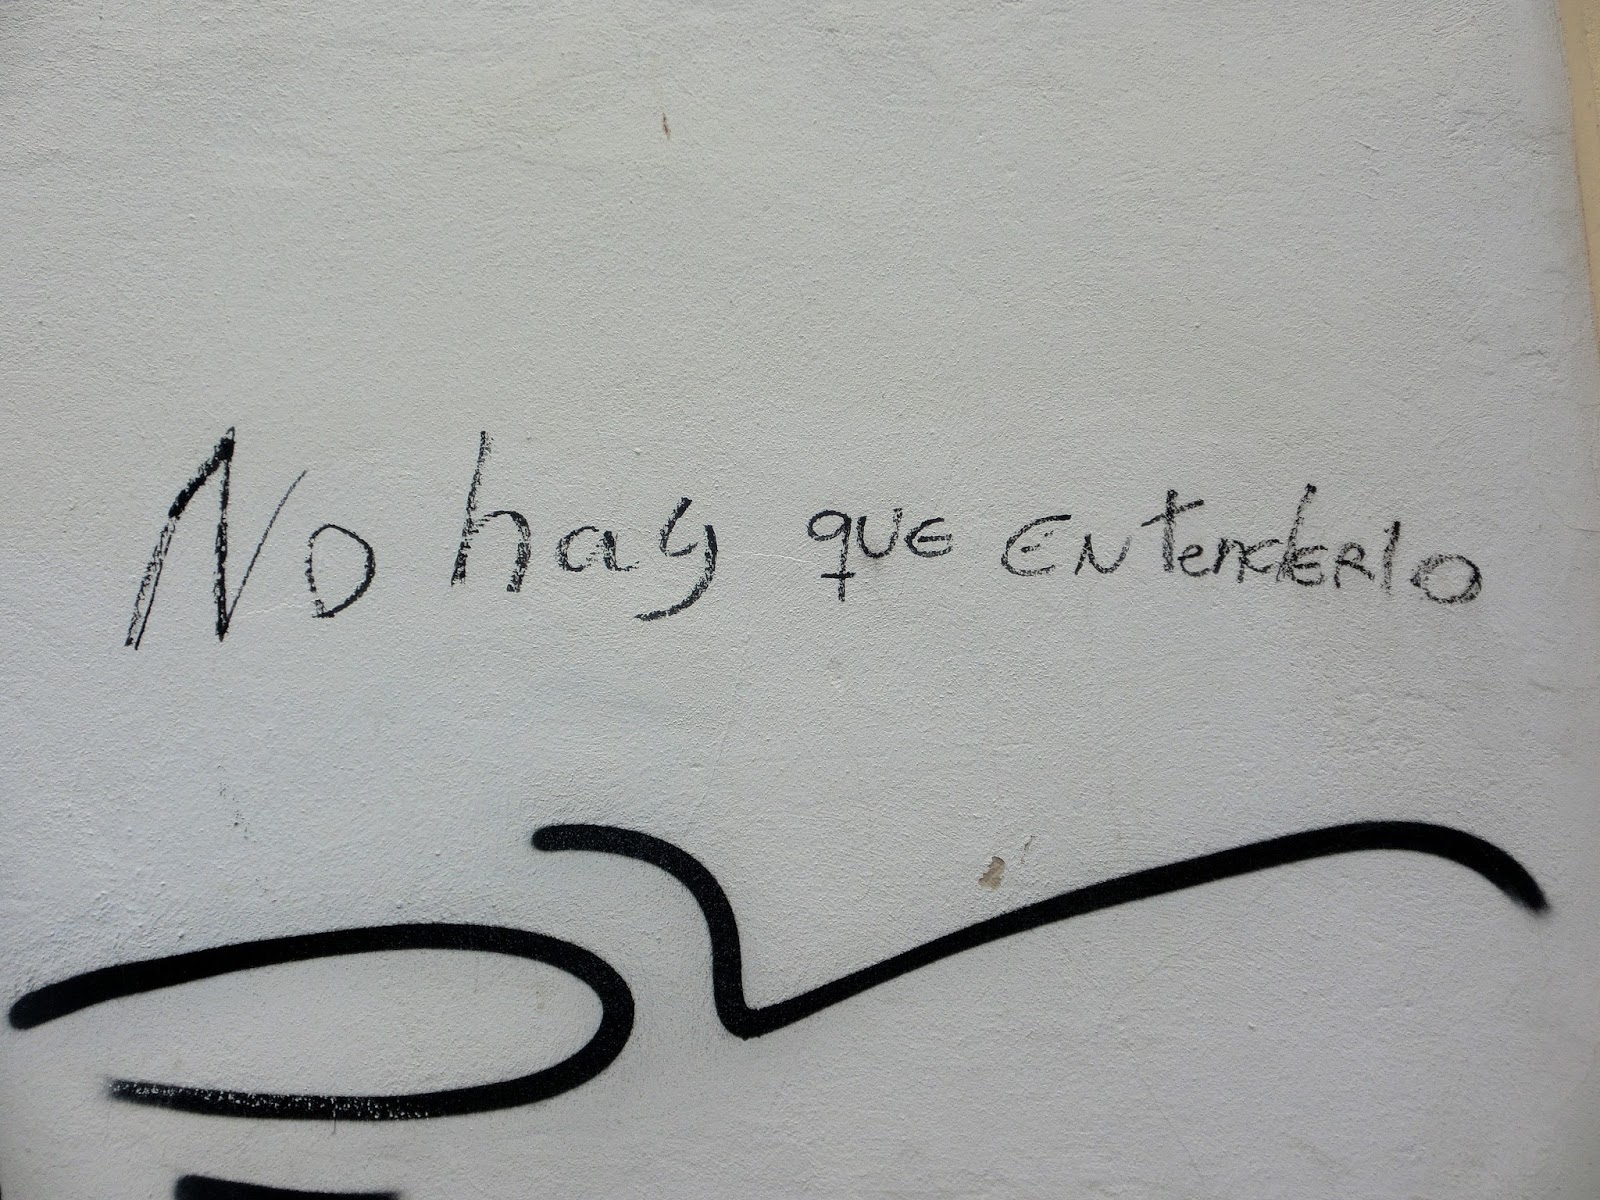 No hay que entenderlo